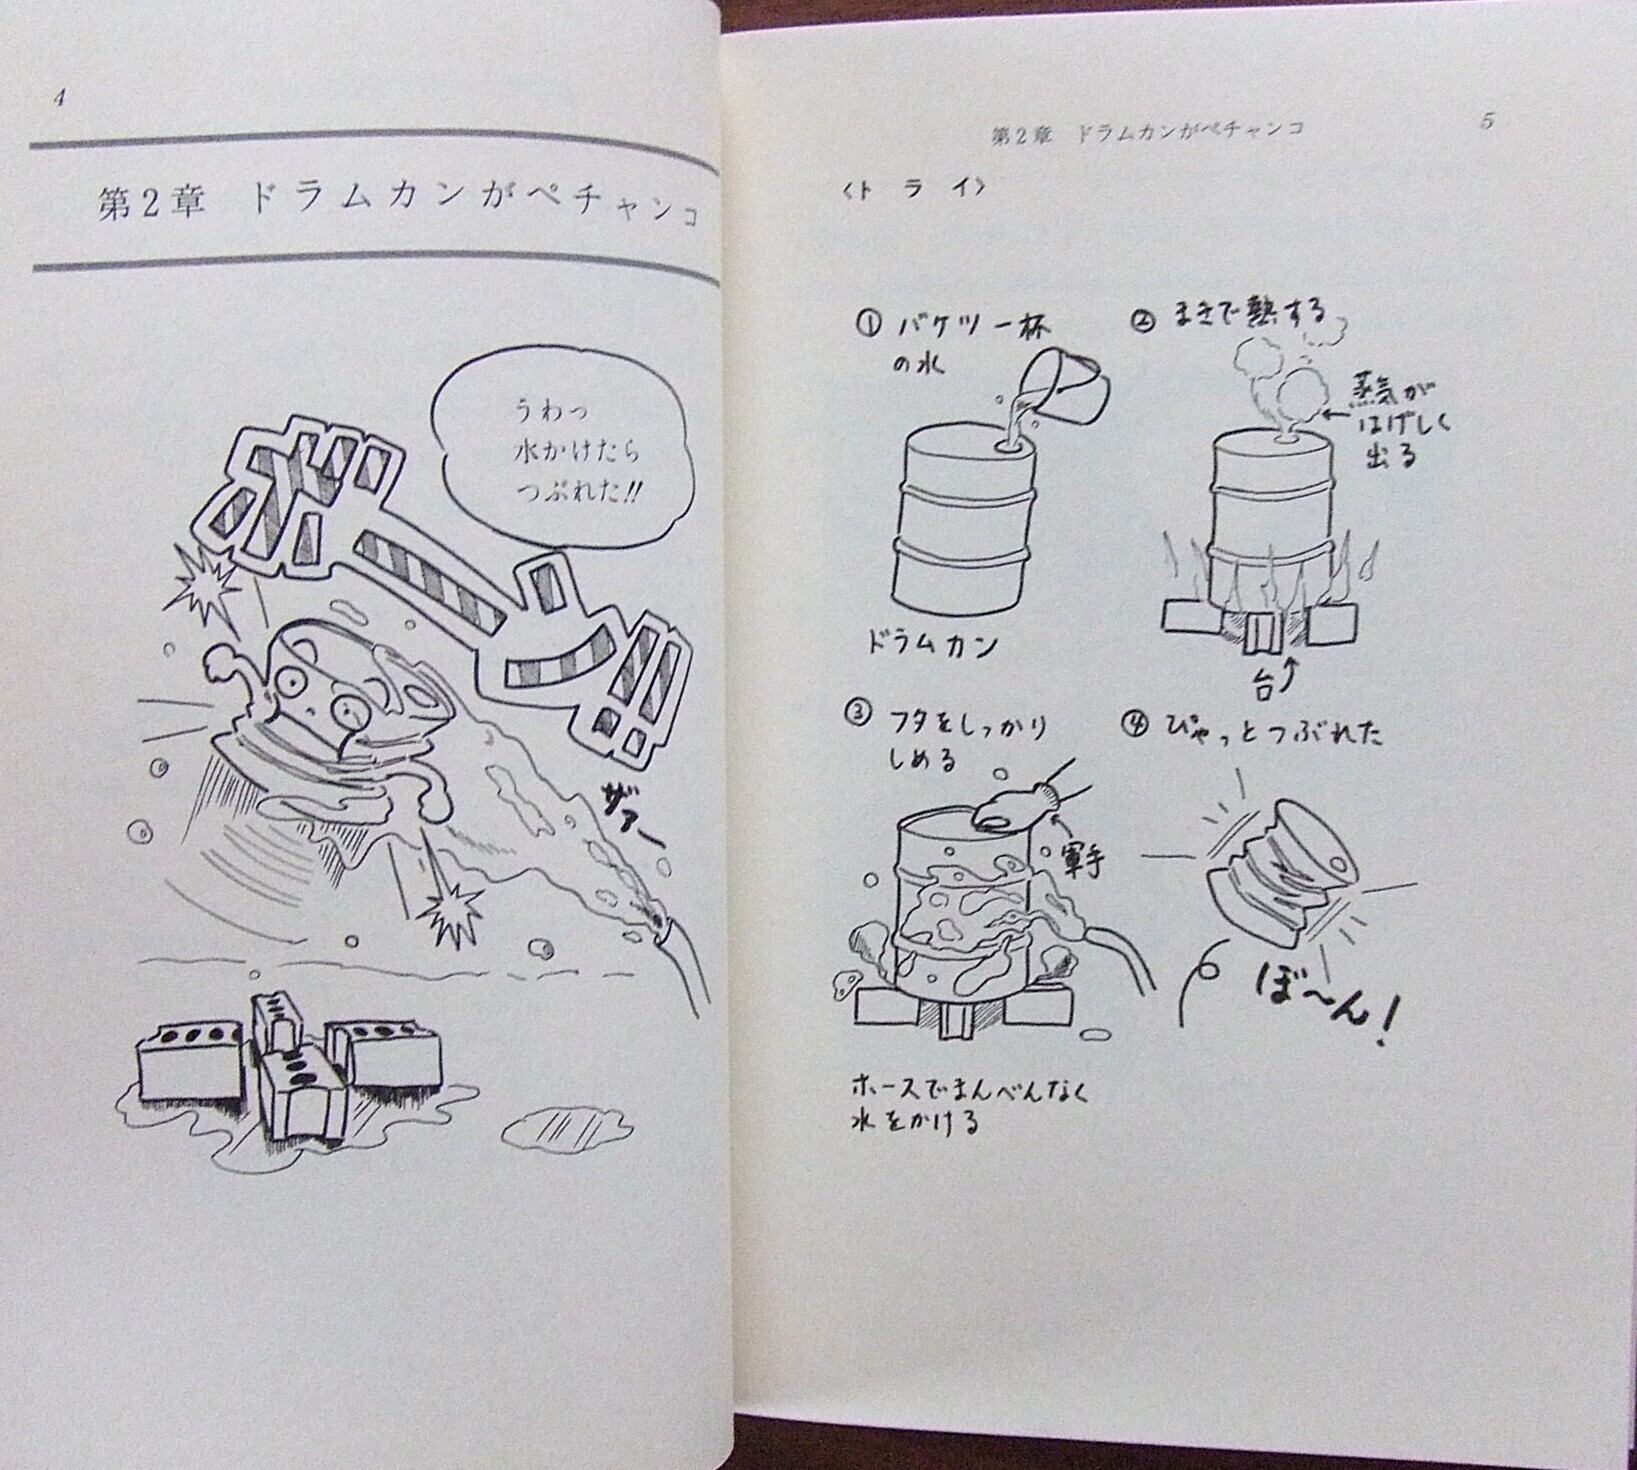 4
第2章 ドラムカンがペチャンコ
うわっ
水かけたら
つぶれた!!
ボーン!!
ザァー
第2章 ドラムカンがペチャンコ
5
〈トライ〉
① バケツ一杯
の水
ドラムカン
② まきで熱する
蒸気が
はげしく
出る
台
③ フタをしっかり
しめる
軍手
ホースでまんべんなく
水をかける
④ ぴゃっとつぶれた
ぼ〜ん!